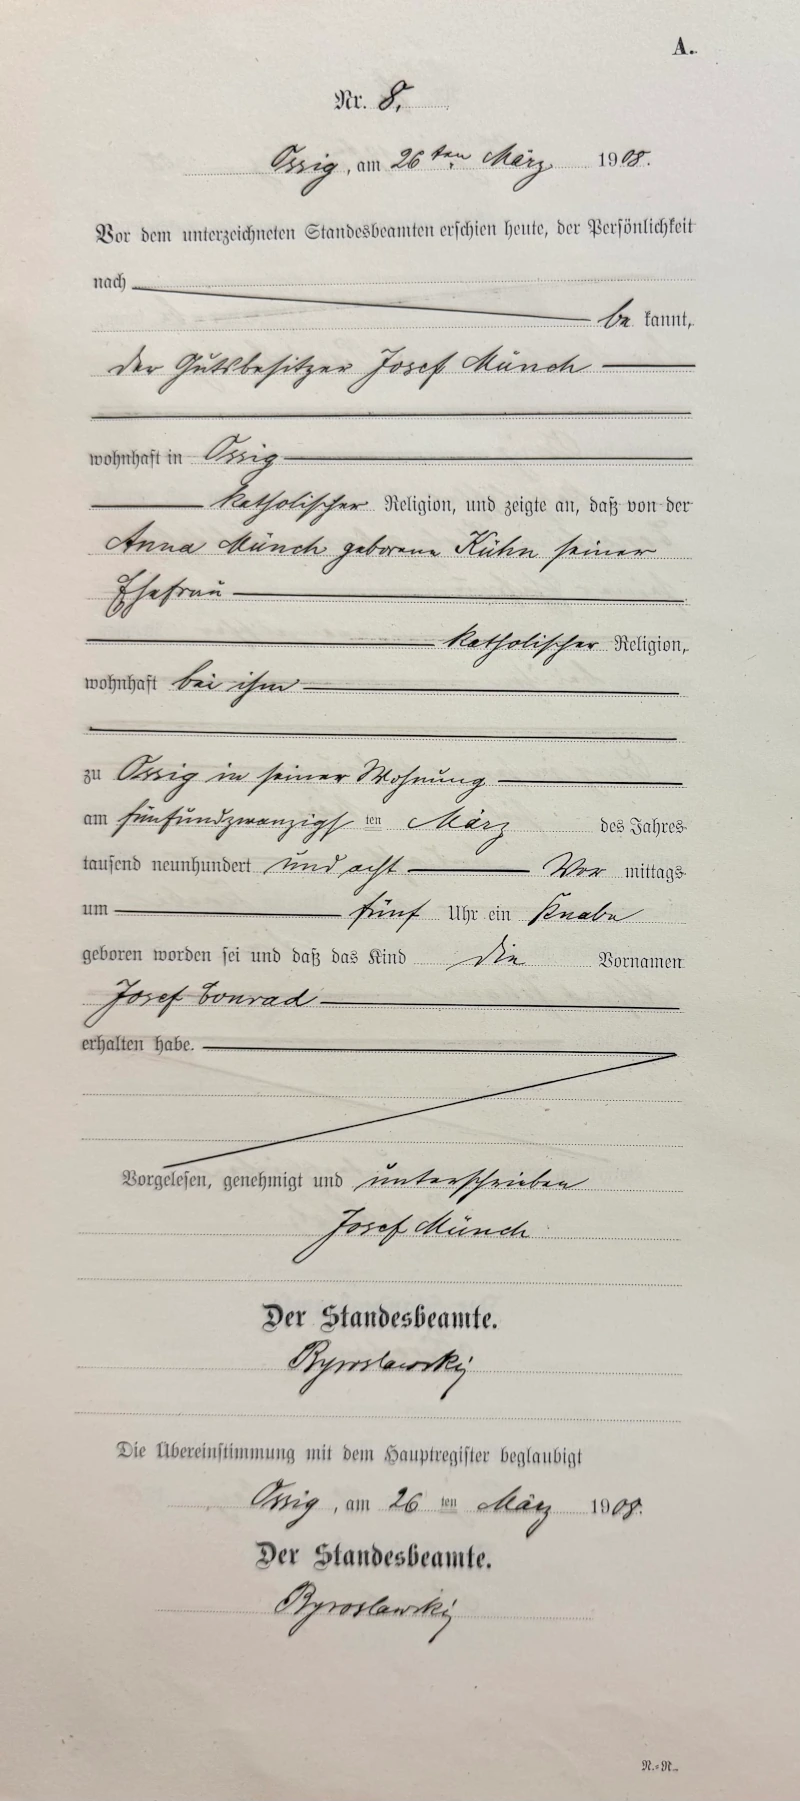 A.
Nr. 8.
Ossig, am 26ten März 1908.
Vor dem unterzeichneten Standesbeamten erschien heute, der Persönlichkeit
nach
be kannt,
der Gutsbesitzer Josef Münch
wohnhaft in Ossig
katholischer Religion, und zeigte an, daß von der
Anna Münch geborene Kühn seiner
Ehefrau
katholischer Religion,
wohnhaft bei ihm
zu Ossig in seiner Wohnung
am fünfundzwanzigsten März des Jahres
tausend neunhundert und acht Vor mittags
um fünf Uhr ein Knabe
geboren worden sei und daß das Kind die Vornamen
Josef Conrad
erhalten habe.
Vorgelesen, genehmigt und unterschrieben
Josef Münch
Der Standesbeamte.
Die Übereinstimmung mit dem Hauptregister beglaubigt
Ossig, am 26 ten März 1908.
Der Standesbeamte.